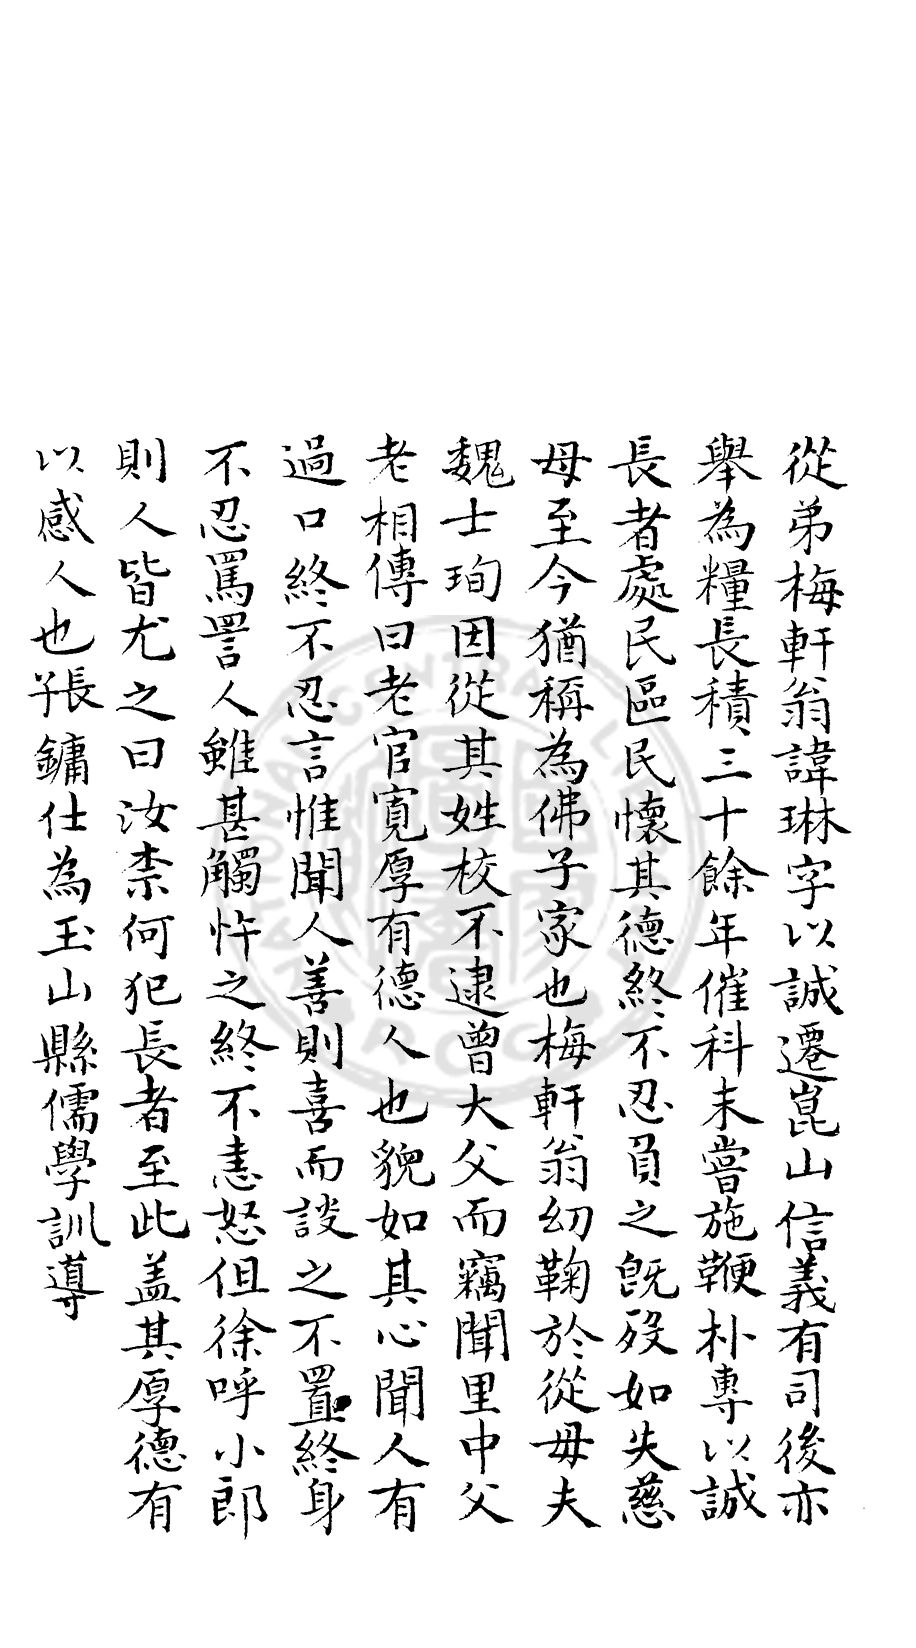 從弟梅軒翁諱琳字以誠遷崑山信義有司後亦
舉為糧長積三十餘年催科未嘗施鞭朴專以誠
長者處民區民懷其德終不忍負之既歿如失慈
母至今猶稱為佛子家也梅軒翁幼鞠於從母夫
魏士珣因從其姓校不逮曾大父而竊聞里中父
老相傳曰老官寬厚有德人也貌如其心聞人有
過口終不忍言惟聞人善則喜而談之不置終身
不忍罵詈人雖甚觸忤之終不恚怒但徐呼小郎
則人皆尤之曰汝柰何犯長者至此盖其厚德有
以感人也張鏞仕為玉山縣儒學訓導
NATIONAL CENTRAL LIBRARY